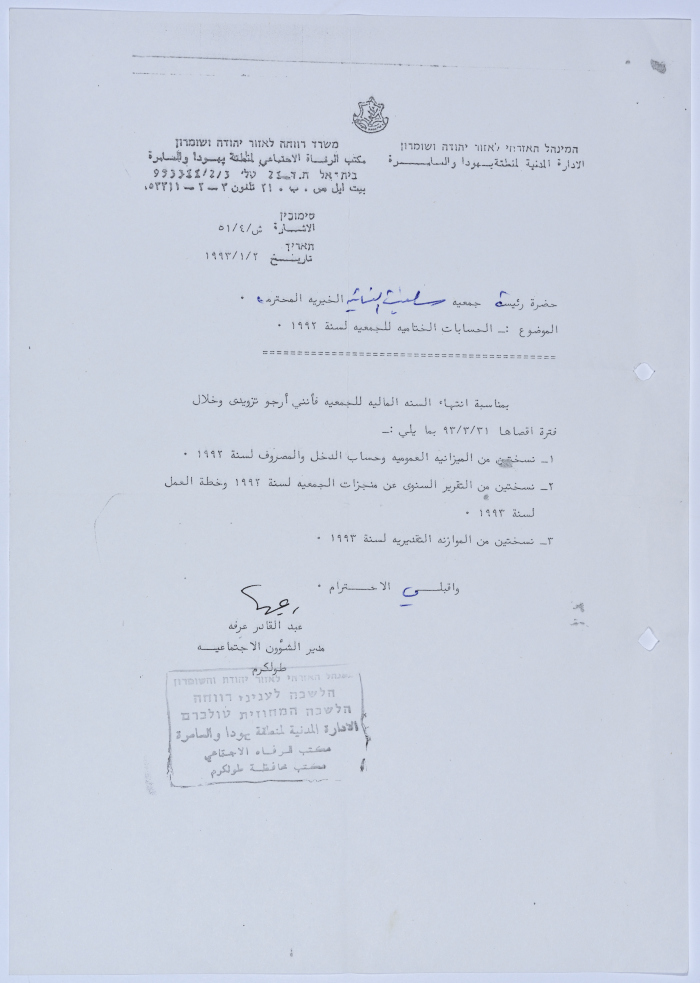 המינהל האזרחי לאזור יהודה ושומרון
الادارة المدنية لمنطقة يهودا والسامرة
משרד רווחה לאזור יהודה ושומרון
مكتب الرفاة الاجتماعي لمنطقة يهودا والسامرة
בית־אל ת.ד. 21 טלי 953311/2/3
بيت ايل ص . ب . ٢١ تلفون ٣ – ٢ – ٥٣٣١١
סימוכין
الاشارة ش/٤/٥١
תאריך
تاريخ ١٩٩٣/١/٢
حضرة رئيسة جمعيه النسائيه الخيريه المحترمه .
الموضوع :ـ الحسابات الختاميه للجمعيه لسنة ١٩٩٢ .
بمناسبة انتهاء السنه الماليه للجمعيه فأنني أرجو تزويدى وخلال
فترة اقصاها ٩٣/٣/٣١ بما يلي :ـ
١ـ نسختين من الميزانيه العموميه وحساب الدخل والمصروف لسنة ١٩٩٢ .
٢ـ نسختين من التقرير السنوى عن منجزات الجمعيه لسنة ١٩٩٢ وخطة العمل
لسنة ١٩٩٣ .
٣ـ نسختين من الموازنه التقديريه لسنة ١٩٩٣ .
واقبلي الاحترام .
عبد القادر عرفه
مدير الشؤون الاجتماعيه
طولكرم
המנהל האזרחי לאזור יהודה והשומרון
הלשכה לעניני רווחה
הלשכה המחוזית טולכרם
الادارة المدنية لمنطقة يهودا والسامرة
مكتب الرفاه الاجتماعي
مكتب محافظة طولكرم